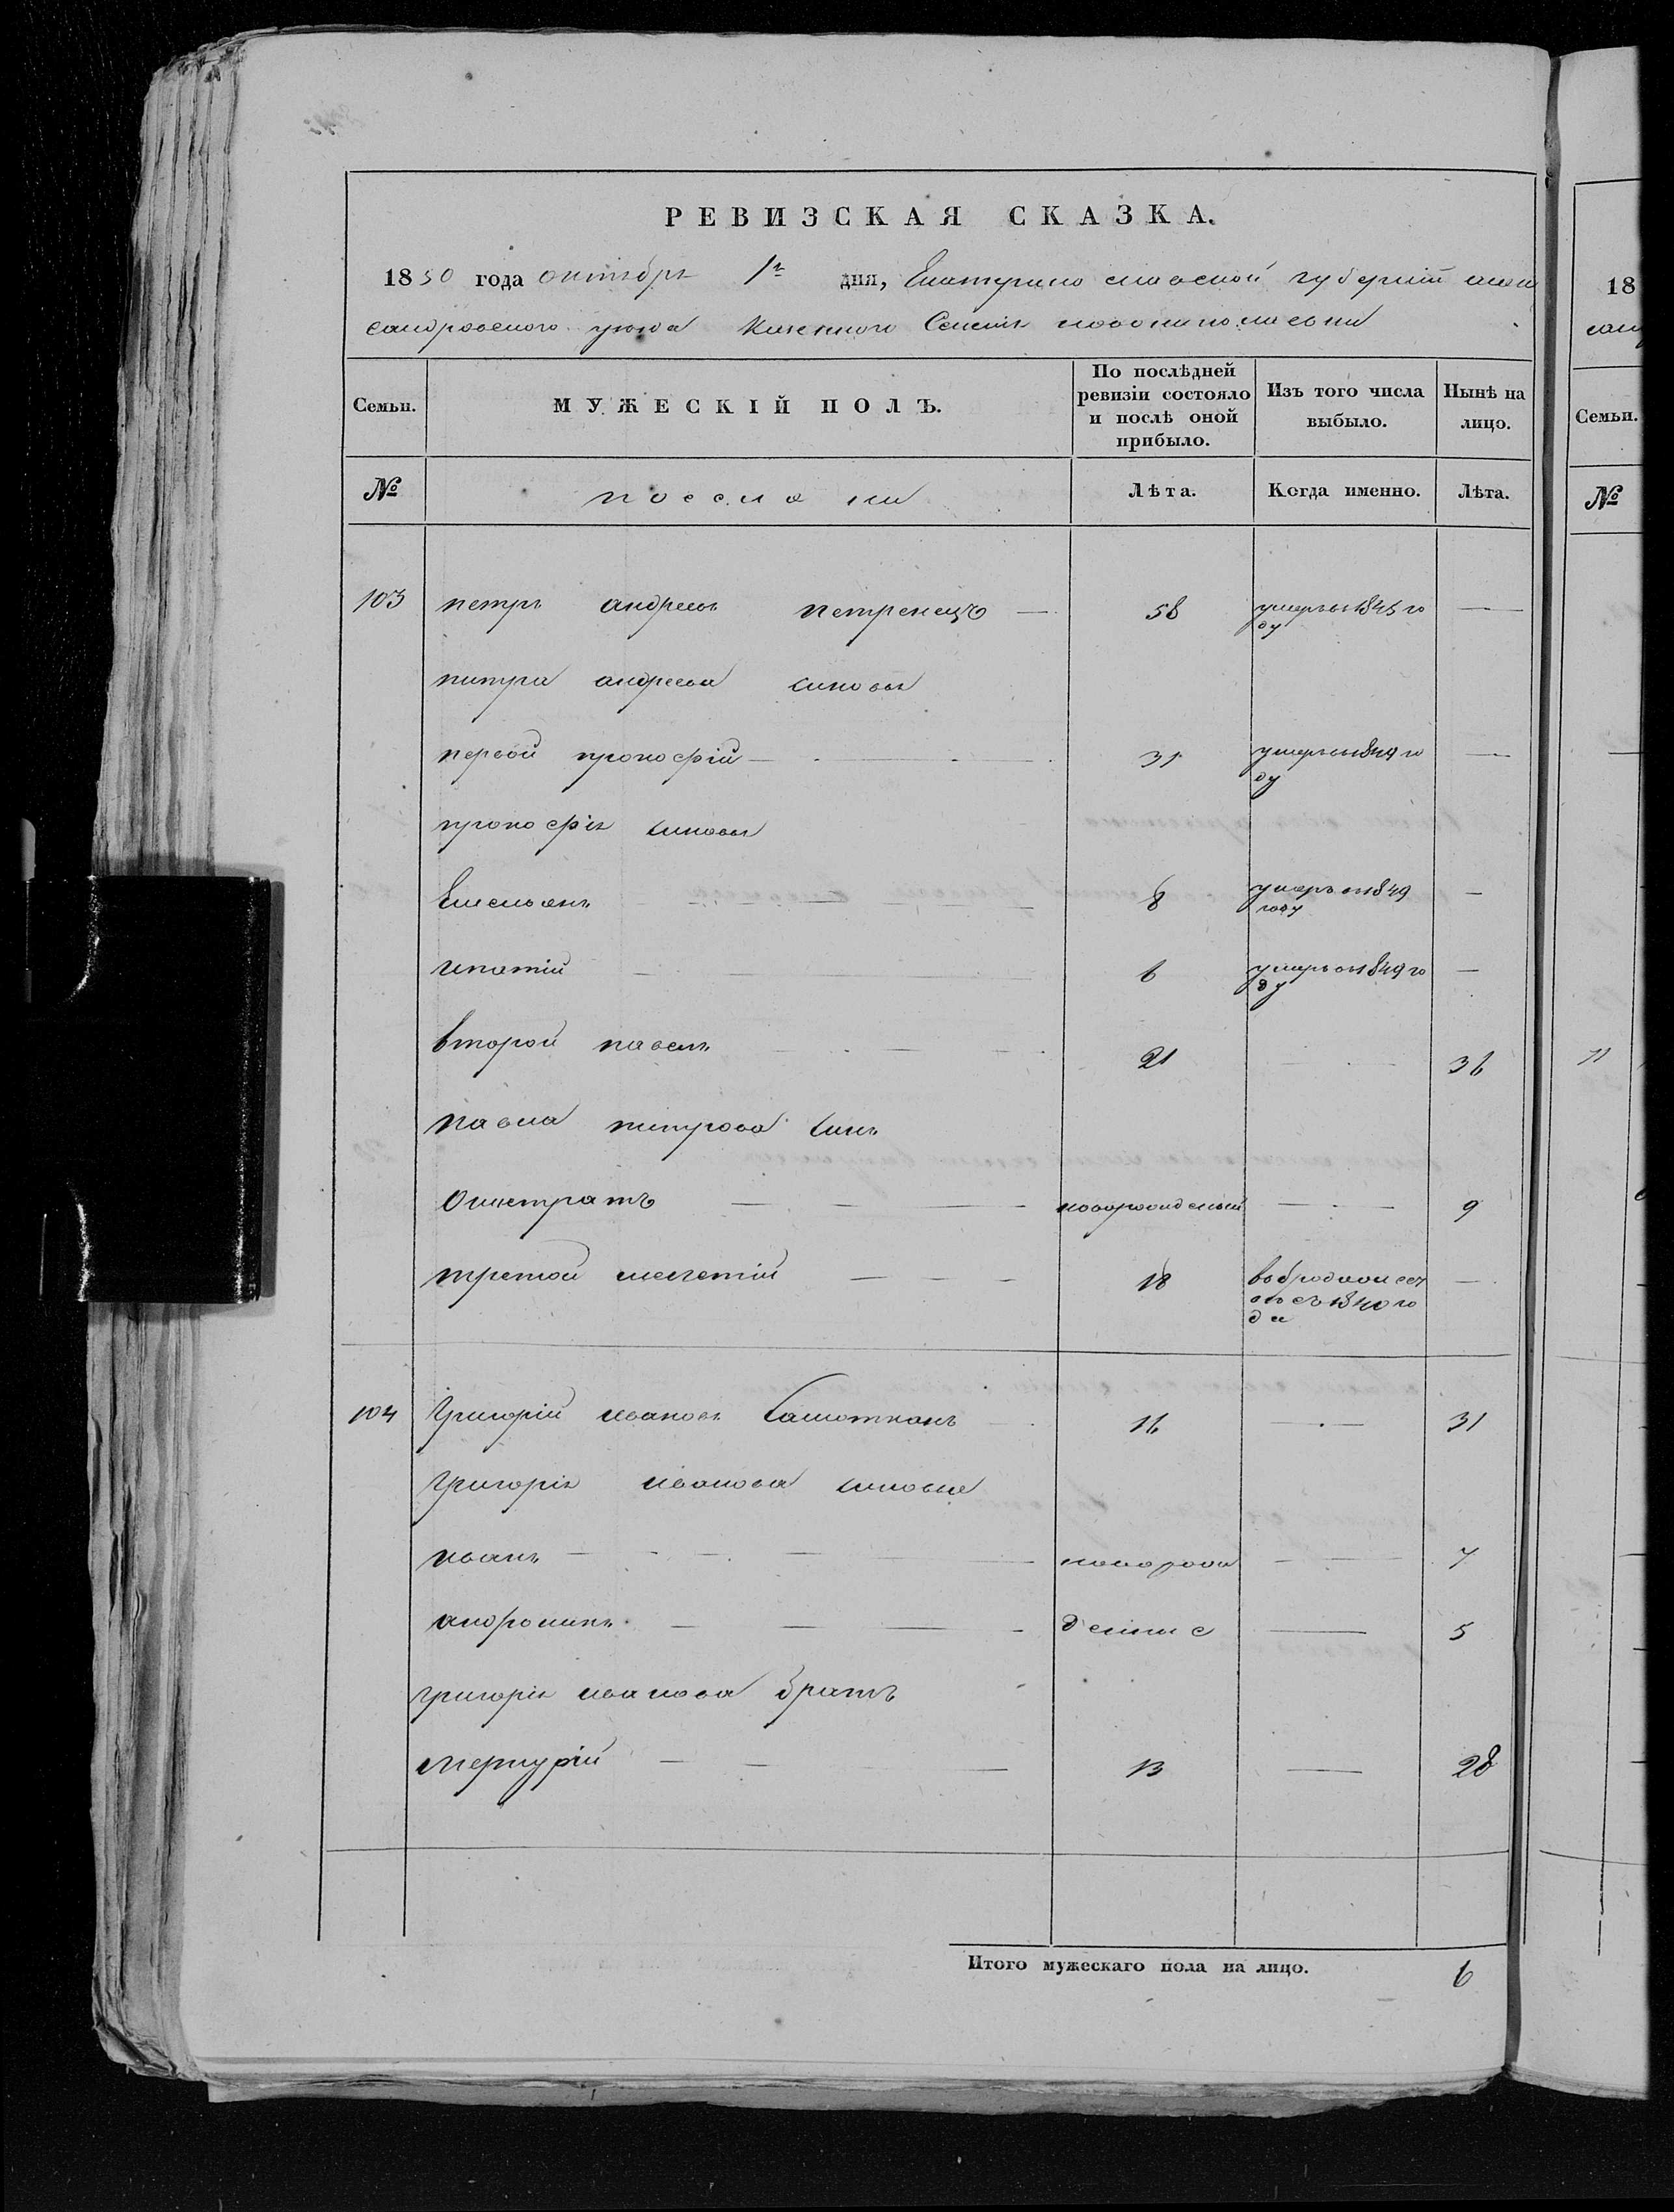 РЕВИЗСКАЯ СКАЗКА.
1850 года октября 1го дня, Екатерино славской губернiи алек
сандровского уезда казенного Селенiя новониколаевки
Семьи. МУЖЕСКІЙ ПОЛЪ. По послѣдней ревизіи состояло и послѣ оной прибыло. Изъ того числа выбыло. Нынѣ на лицо.
№ Лѣта. Когда именно. Лѣта.
103 петръ андреевъ петренецъ — 58 умеръ въ 1845 го ду —
питра андреева синовья
первой прокофiй — 31 умеръ въ 1849 го ду —
прокофiя синовья
Емельянъ — 8 умеръ въ 1849 году —
ипатiй — 6 умеръ въ 1849 го ду —
второй павелъ — 21 — 36
павла питрова синъ
— новорожденый — 9
третой — 18 1840 го да —
104 Григорiй ивановъ — 16 — 31
Григорiя иванова синовья
иванъ — новорож — 7
андроникъ — денiи е — 5
григорiя иванова братъ
меркурiй — 13 — 28
Итого мужескаго пола на лицо. 6
18
Семьи.
№